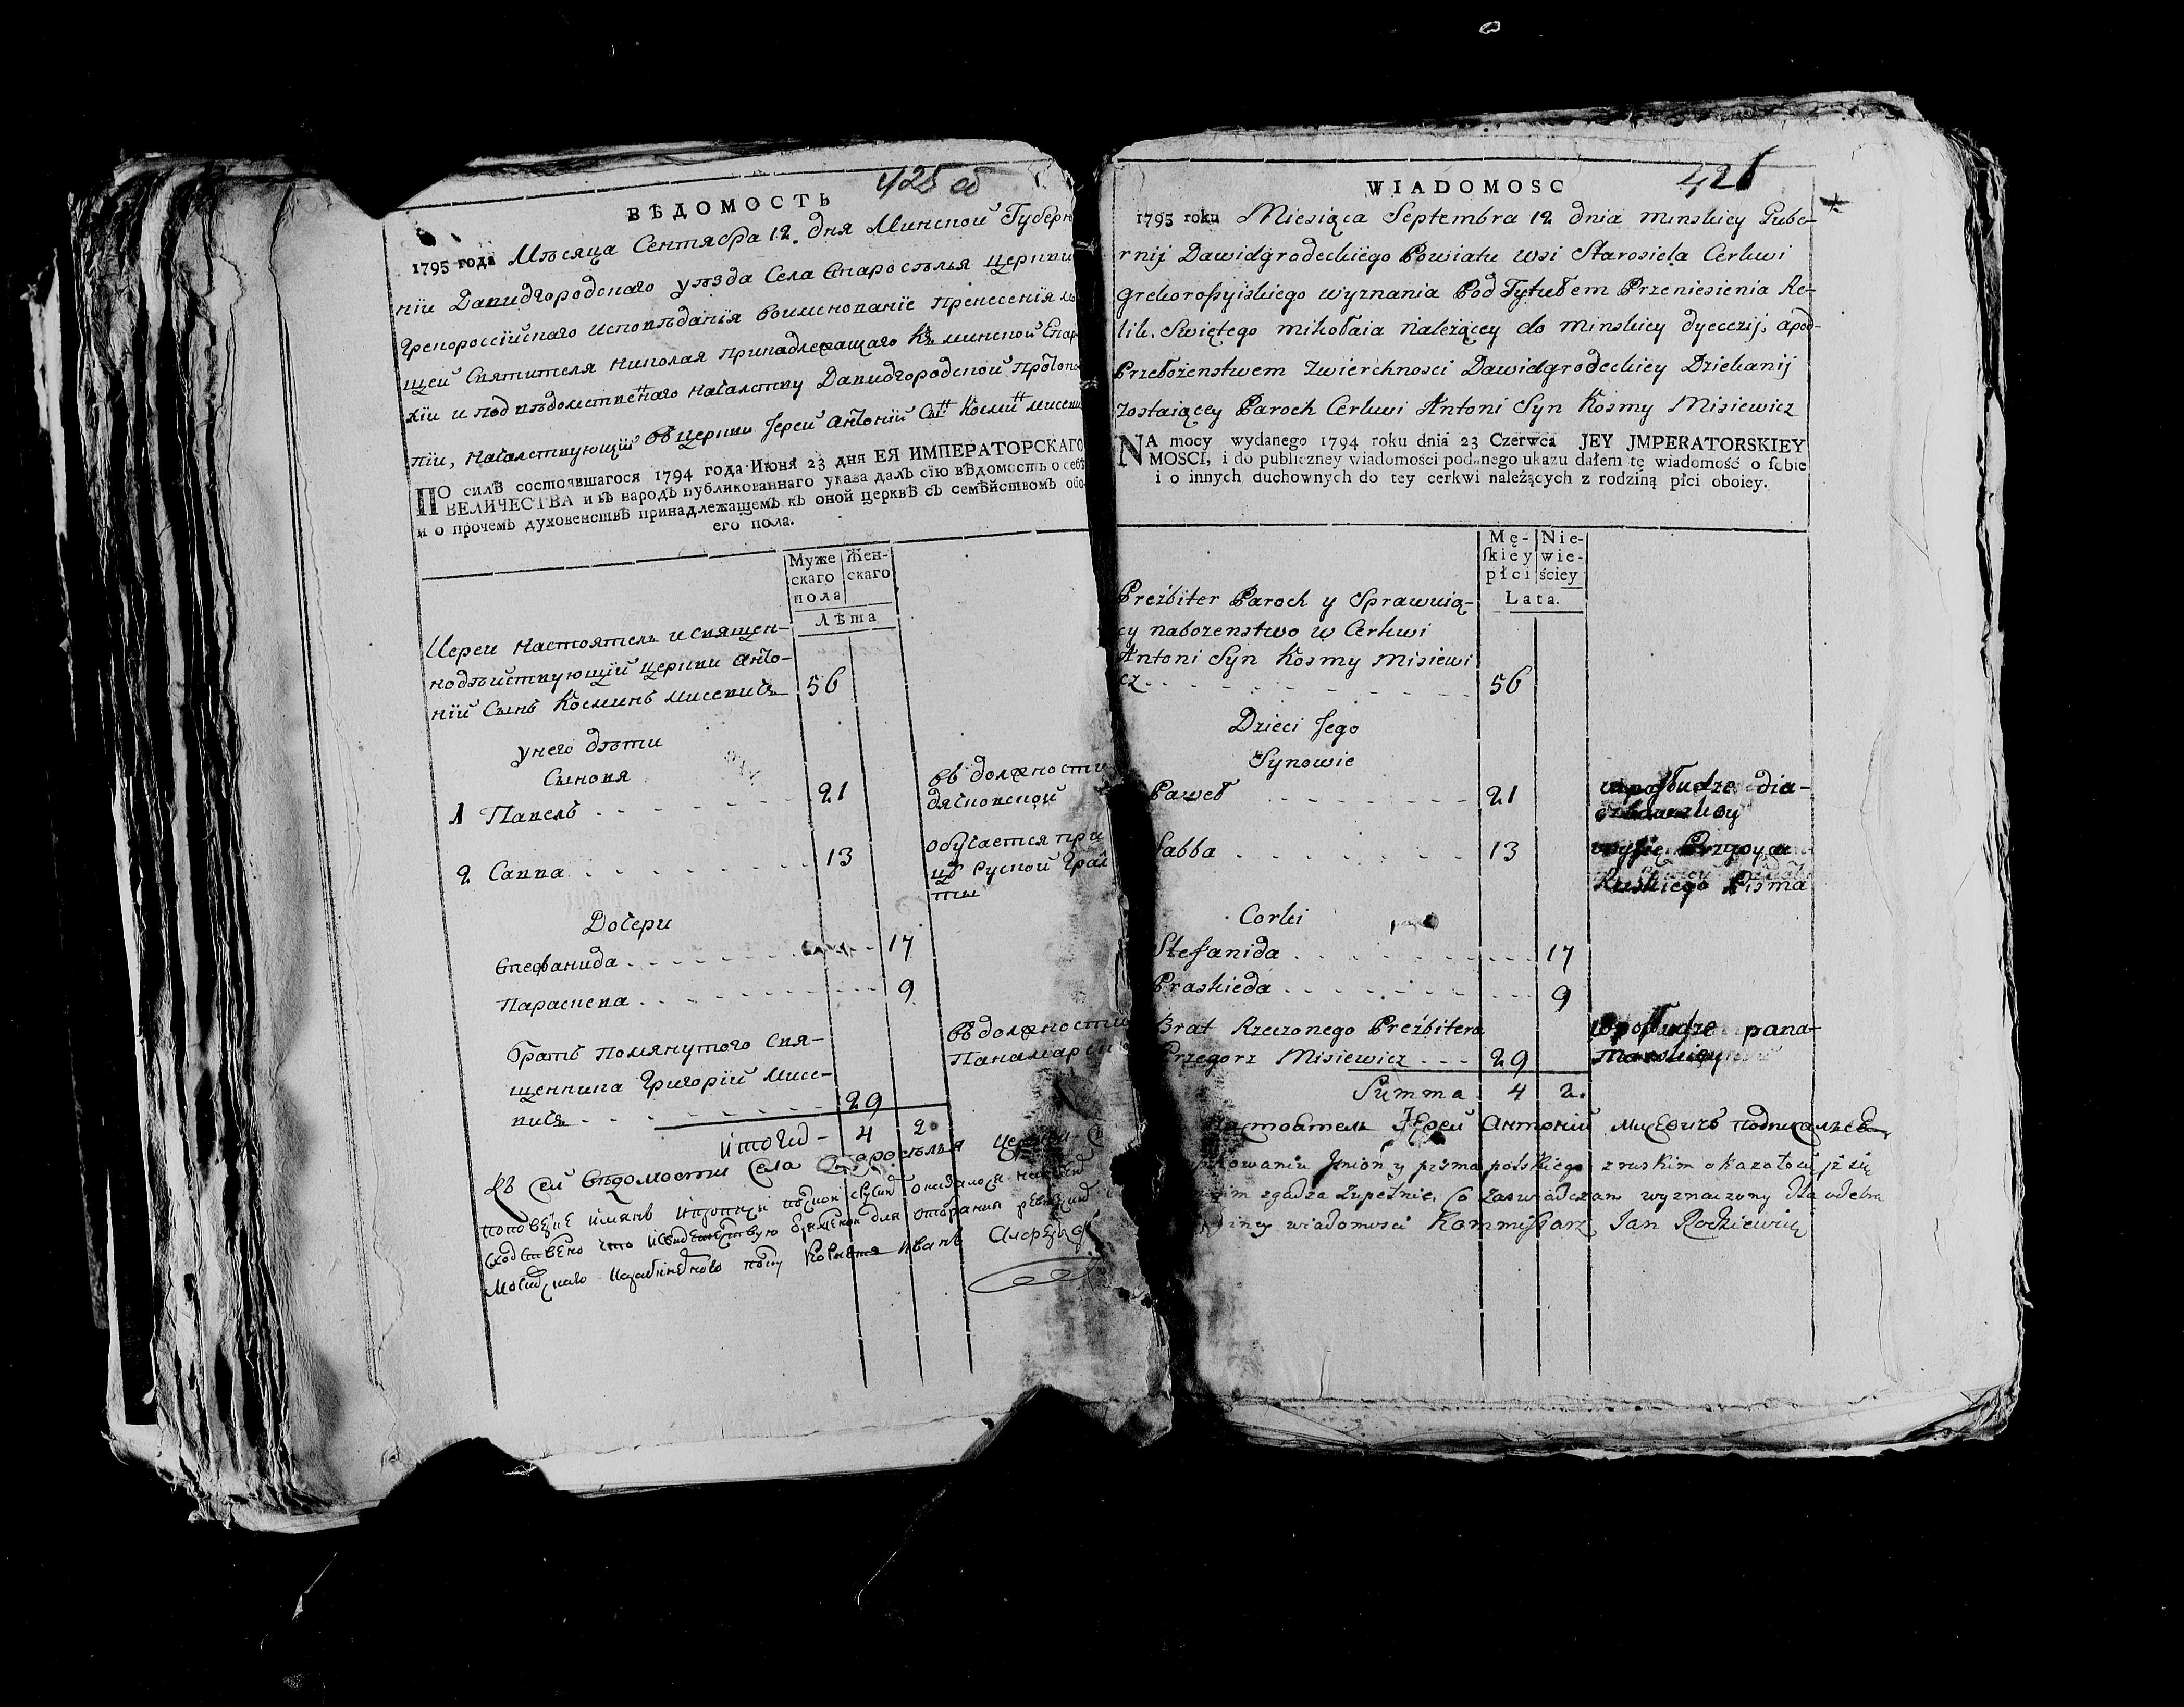 425 об
ВѢДОМОСТЬ
1795 года Мѣсяца Сентября 12. дня Минской Губерн
нїи Давидгородскаго уѣзда Села Старосѣлья Церкви
Грекороссїйскаго исповѣданїя воименованїе пренесенїя мо
щей Святителя Николая принадлежащаго Къ минской Епар
хїи и под вѣдомственнаго началству Давидгородской Протопо
пїи, началствующїй въ Церкви Іерей Антонїй Сынъ Косминъ мисеви
ПО силѣ состоявшагося 1794 года Июня 23 дня ЕЯ ИМПЕРАТОРСКАГО
ВЕЛИЧЕСТВА и въ народъ публикованнаго указа далъ сїю вѣдомость о себѣ
и о прочемъ духовенствѣ принадлежащемъ къ оной церквѣ съ семѣйствомъ обо-
его пола.
Муже Жен-
скаго скаго
пола
Лѣта
Иереи Настоятель и священ-
нодѣйствующїй Церкви Анто-
нїй Сынъ Косминъ мисевичъ 56
унего дѣти
Сыновя
1 Павелъ 21 въ должности
дячковской
2 Савва 13 обучается при
цѣ Руской Гра
ты
Дочери
Стефанида 17
Параскева 9
братъ помянутого Свя-
щенника Григорїй Мисе-
вичъ 29
въ должности
Панамарск
итого - 4 2
Въ сей вѣдомости села Старосѣлья
Иванъ
WIADOMOSC
426
1795 roku Miesiąca Septembra 12 dnia minskiey Gube-
rnij Dawidgrodeckiego Powiatu wsi Starosiela Cerkwi
Grekorossyiskiego wyznania Pod Tytułem Przeniesienia Re-
lik. Swiętego mikołaia należącey do minskiey dyecezij, apod-
Przełożenstwem Zwierchnosci Dawidgrodeckiey Dziekanij
zostaiącey Paroch Cerkwi Antoni Syn Kosmy Misiewicz
NA mocy wydanego 1794 roku dnia 23 Czerwca JEY JMPERATORSKIEY
MOSCI, i do publiczney wiadomości podanego ukazu dałem tę wiadomość o sobie
i o innych duchownych do tey cerkwi należących z rodziną płci oboiey.
Mę- Nie-
skiey wie-
płci ściey
Lata.
Prezbiter Paroch y Sprawuią-
cy nabozenstwo w Cerkwi
Antoni Syn Kosmy Misiewi
cz 56
Dzieci Jego
Synowie
Paweł 21 w posłudze dia-
czkowskiey
Sabba 13
Ruskiego Pisma
Corki
Stefanida 17
Praskieda 9
Brat Rzeczonego Prezbitera
Grzegorz Misiewicz 29 w posłudze pana-
marskiey
Summa 4 2.
Настоятель Іерей Антонїй Мисевичъ подписалъся
Jmion y pisma polskiego z ruskim okazałow jż się
zgadza zupełnie, Co zaswiadczam wyznaczony dla odebra
wiadomosci Kommissarz Jan Rodziewicz